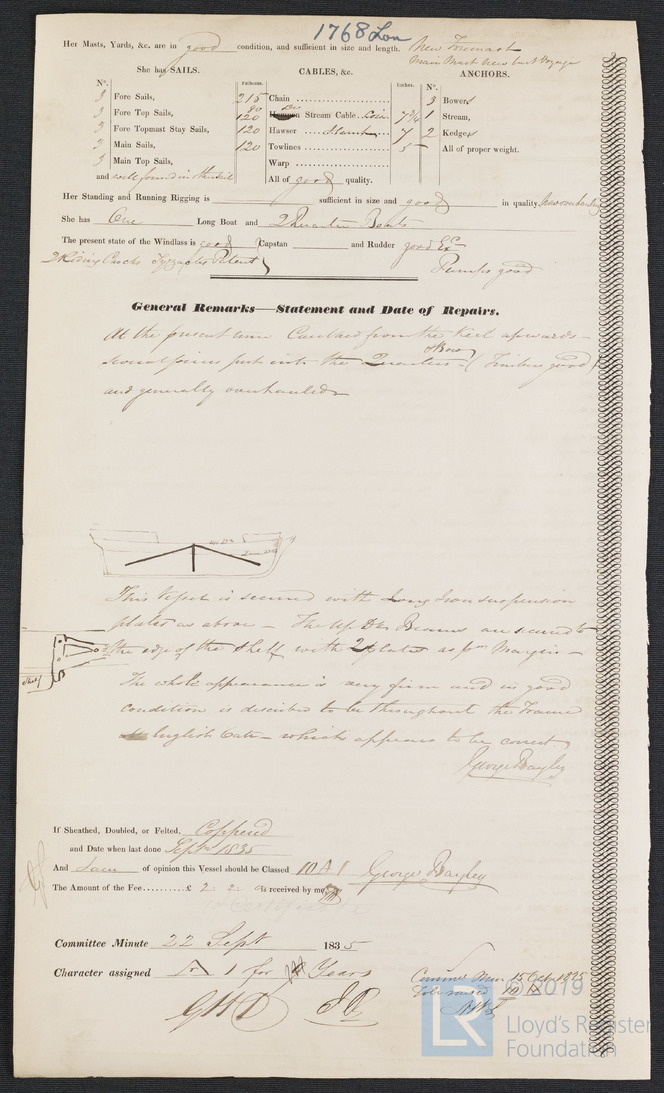 1768 Lon
Her Masts, Yards, &c. are in good condition, and sufficient in size and length. New Foremast
Main Mast New last Voyage
She has SAILS.
CABLES, &c.
ANCHORS.
N°.
Fathoms.
Inches.
N°.
3 Fore Sails,
215 Chain
3 Bowers
3 Fore Top Sails,
80 120 Do Stream Cable 7¾
1 Stream,
3 Fore Topmast Stay Sails,
120 Hawser 7
2 Kedges
3 Main Sails,
120 Towlines 5
All of proper weight.
3 Main Top Sails,
Warp
and well found in other sails
All of good quality.
Her Standing and Running Rigging is sufficient in size and good in quality, New overhauling
She has One Long Boat and 2 Quarter Boats
The present state of the Windlass is good Capstan and Rudder good
2 Riding Patent
Pumps good
General Remarks—Statement and Date of Repairs.
At the present time Caulked from the Keel upwards —
several pieces put into the Quarters & Bow (Timbers good)
and generally overhauled
This Vessel is secured with Long Iron suspension
plates as above — The Up Dk Beams are secured to
the edge of the Shelf with plates as pr Margin —
Shelf
The whole appearance is very firm and in good
condition is described to be throughout the Frame
English Oak — which appears to be correct.
George Bayley
If Sheathed, Doubled, or Felted, Coppered
and Date when last done Septr 1835
And I am of opinion this Vessel should be Classed 10 A 1 George Bayley
The Amount of the Fee..........£ 2. 2. is received by me,
Committee Minute 22 Septr 1835
Character assigned A 1 for Years
© 2019
Lloyd's Register
Foundation
LR